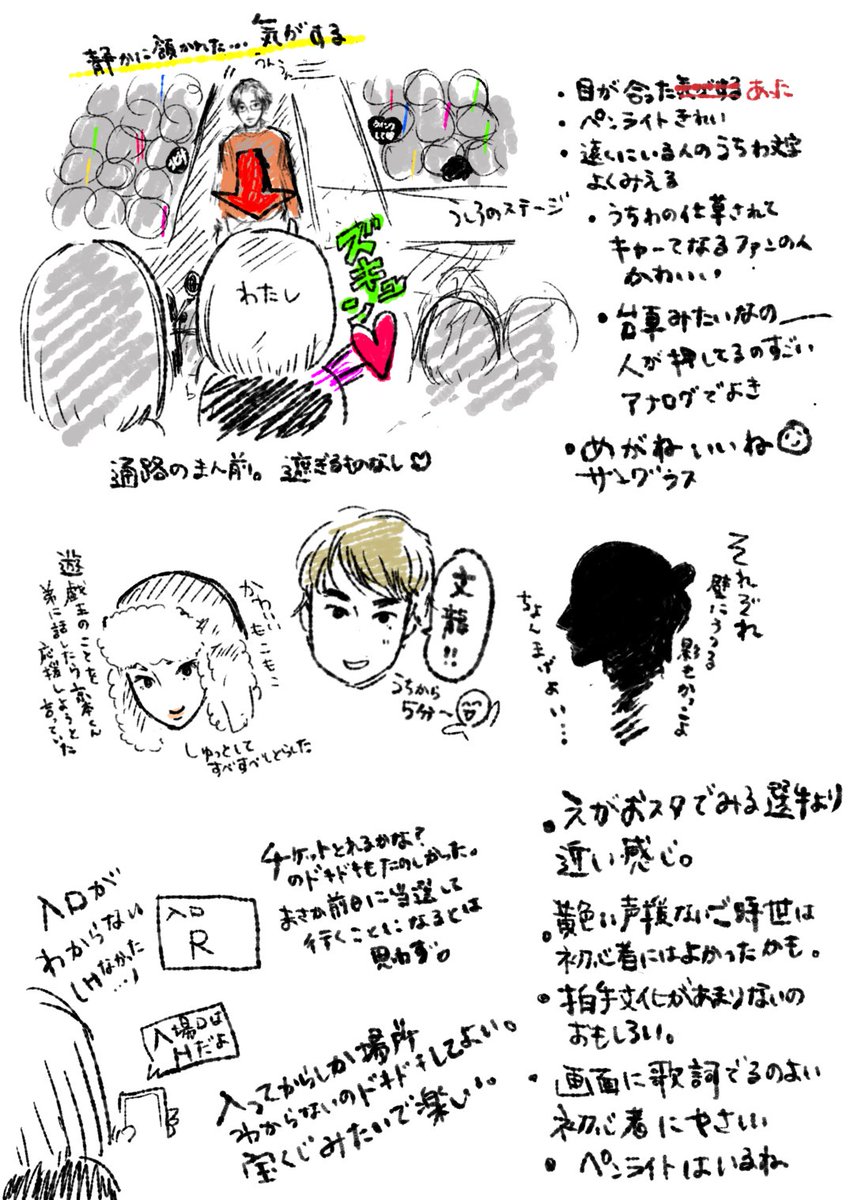 静かに頷かれた…気がする
うんうん
うしろのステージ
わたし
ズキュン
通路のまん前。遮ぎるものなし♡
・目が合った気がする あった
・ペンライトきれい
・遠くにいる人のうちわ文字
よくみえる
・うちわの仕草されて
キャーてなるファンの人
かわいい
・台車みたいなの
人が押してるのすごい
アナログでよき
・めがねいいね
サングラス
遊戯王のことを
弟に話したら
応援しようと
言っていた
かわいい
もこもこ
しゅっとして
すべすべしとらした
文龍!!
うちから
5分〜
それぞれ
壁にうつる
影もかっこよ
ちょんまげよい…
入口が
わからない
しHなかった
…!
入口
R
入場口は
Hだよ
チケットとれるかな?
のドキドキもたのしかった。
まさか前日に当選して
行くことになるとは
思わず。
入ってからしか場所
わからないのドキドキしてよい。
宝くじみたいで楽しい。
・えがおスタでみる選手より
近い感じ。
・黄色い声援ないご時世は
初心者にはよかったかも。
・拍手文化があまりないの
おもしろい。
・画面に歌詞でるのよい
初心者にやさしい
・ペンライトはいるね